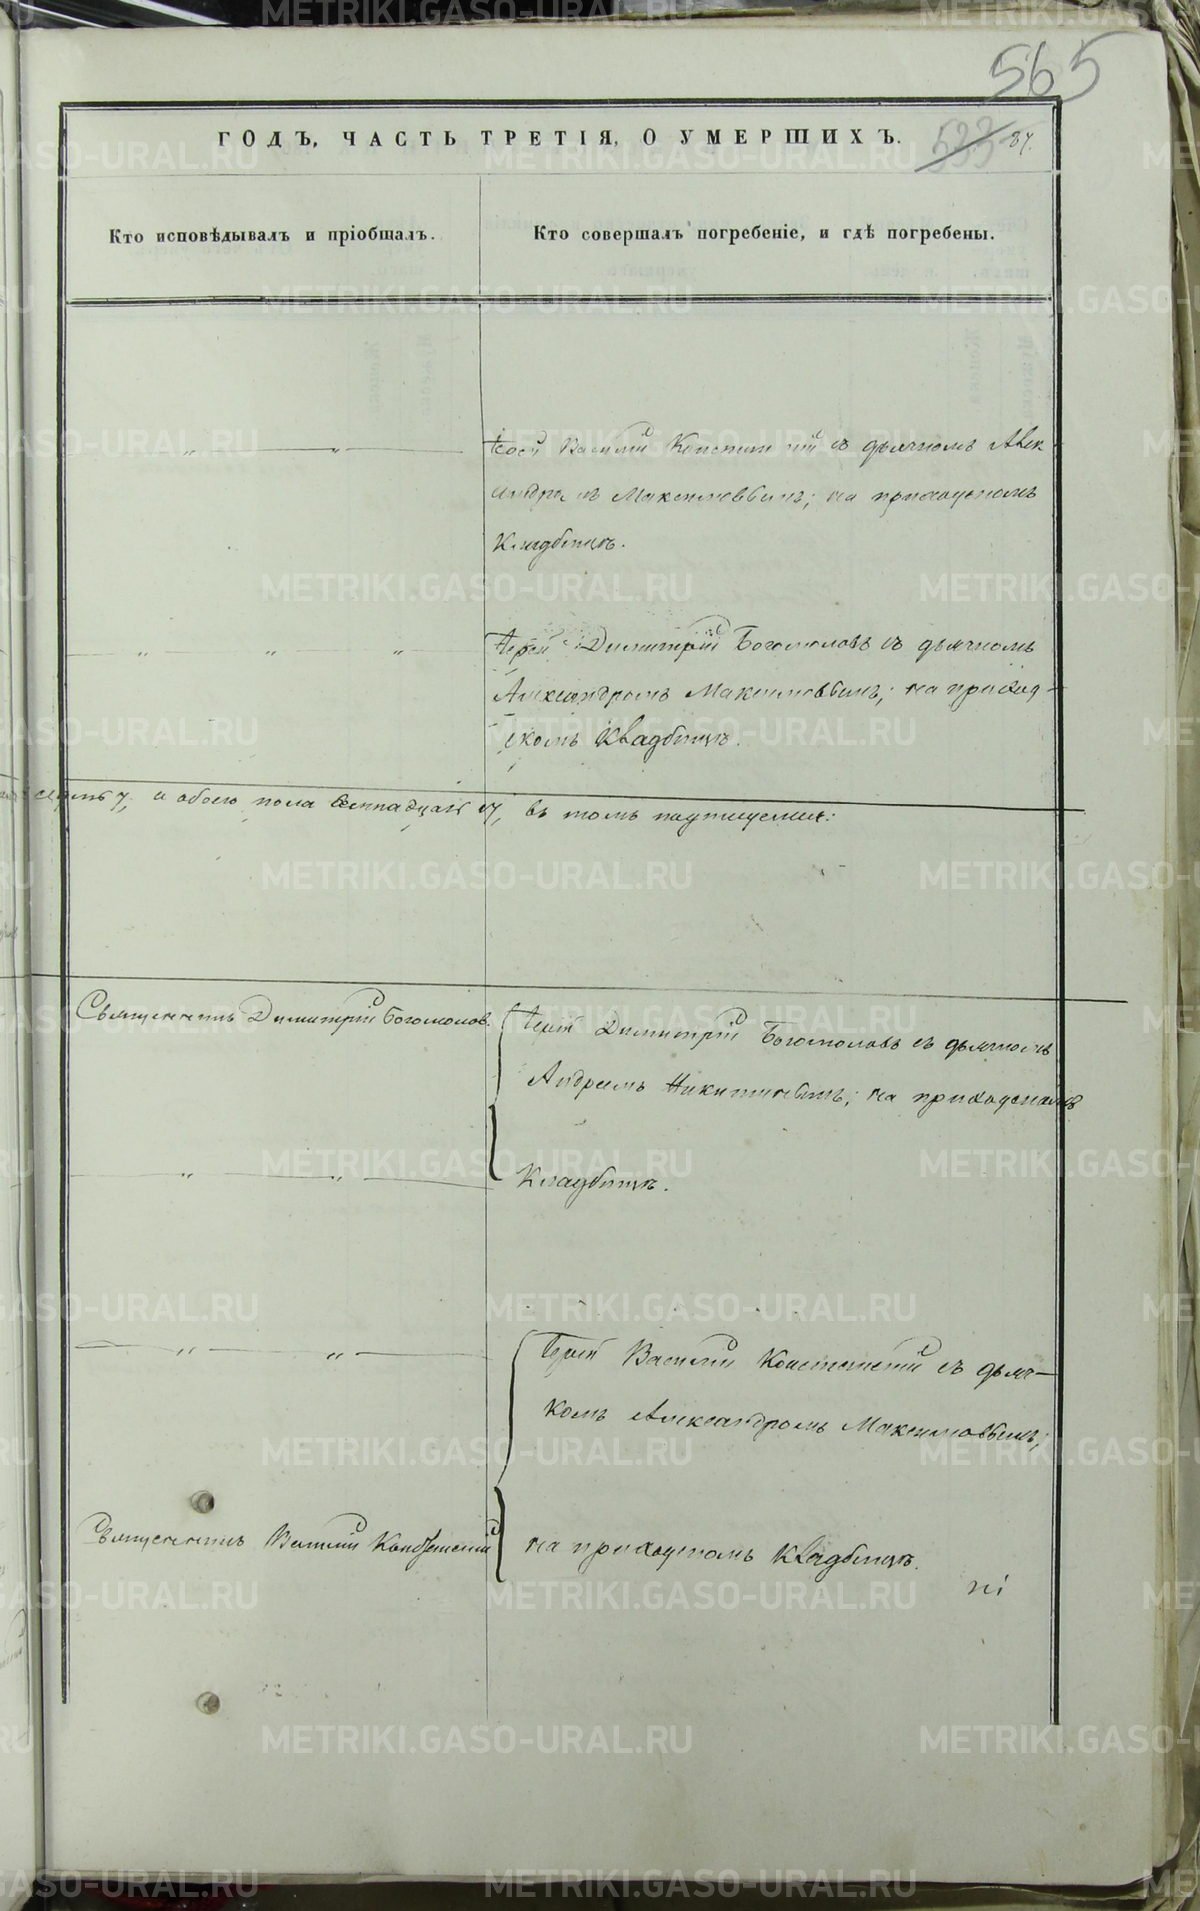 565
ГОДЪ, ЧАСТЬ ТРЕТІЯ, О УМЕРШИХЪ.
533 87.
Кто исповѣдывалъ и пріобщалъ.
Кто совершалъ погребеніе, и гдѣ погребены.
Іерей Василій съ дьячкомъ Алек
сандромъ Максимовымъ; на приходскомъ
Кладбищѣ.
Іерей Димитрій Богомоловъ съ дьячкомъ
Александромъ Максимовымъ; на приход-
скомъ Кладбищѣ.
семь 7, и обоего пола 17, въ томъ подпишемся:
Священникъ Димитрій Богомоловъ.
Іерей Димитрій Богомоловъ съ дьячкомъ
Андреемъ Никитинымъ; на приходскомъ
Кладбищѣ.
Іерей Василій съ дьяч-
комъ Александромъ Максимовымъ;
Священникъ Василій
на приходскомъ Кладбищѣ.
METRIKI.GASO-URAL.RU